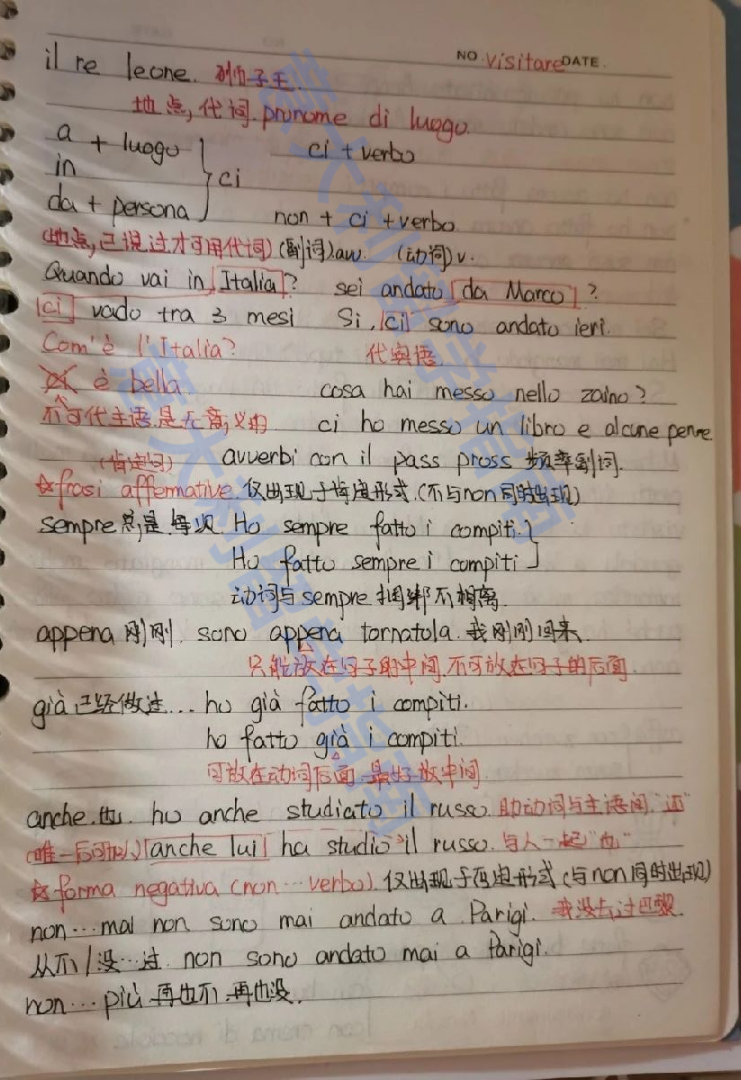 NO. visitare DATE.
il re leone. 狮子王.
地点, 代词 pronome di luogo
a + luogo ci + verbo
in ci
da + persona non + ci + verbo
(地点, 已说过才可用代词) (副词) avv. (动词) v.
Quando vai in Italia? sei andato da Marco?
ci vado tra 3 mesi Si, ci sono andato ieri.
Com'è l'Italia? 代宾语
è bella. cosa hai messo nello zaino?
不可代主语是无意义的 ci ho messo un libro e alcune penne.
(肯定句) avverbi con il pass pross 频率副词.
☆frasi affermative. 仅出现于肯定形式. (不与non同时出现)
sempre 总是 每次 Ho sempre fatto i compiti.
Ho fatto sempre i compiti
动词与sempre 捆绑不相离.
appena 刚刚. sono appena tornatola. 我刚刚回来.
只能放在句子的中间, 不可放在句子的后面
già 已经做过... ho già fatto i compiti.
ho fatto già i compiti.
可放在动词后面, 最好放中间
anche. 也. ho anche studiato il russo. 助动词与主语间, "还"
(唯一后可加人) anche lui ha studio il russo. 与人一起 "也"
☆forma negativa (non ... verbo). 仅出现于否定形式 (与non同时出现)
non ... mai non sono mai andato a Parigi. 我没去过巴黎.
从不 / 没...过. non sono andato mai a Parigi.
non ... più 再也不, 再也没.
意大利留学指南
意大利留学指南